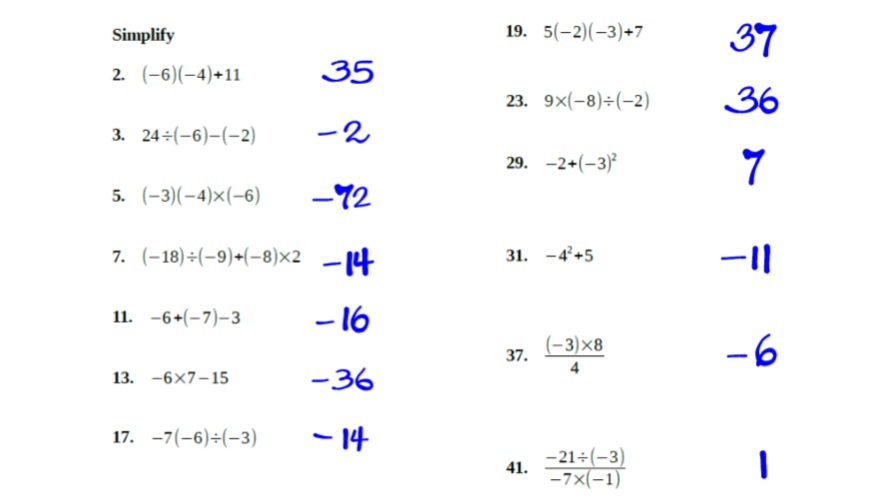 Simplify
2. (−6)(−4)+11 35
3. 24÷(−6)−(−2) −2
5. (−3)(−4)×(−6) −72
7. (−18)÷(−9)+(−8)×2 −14
11. −6+(−7)−3 −16
13. −6×7−15 −36
17. −7(−6)÷(−3) −14
19. 5(−2)(−3)+7 37
23. 9×(−8)÷(−2) 36
29. −2+(−3)² 7
31. −4²+5 −11
37. (−3)×8 / 4 −6
41. −21÷(−3) / −7×(−1) 1